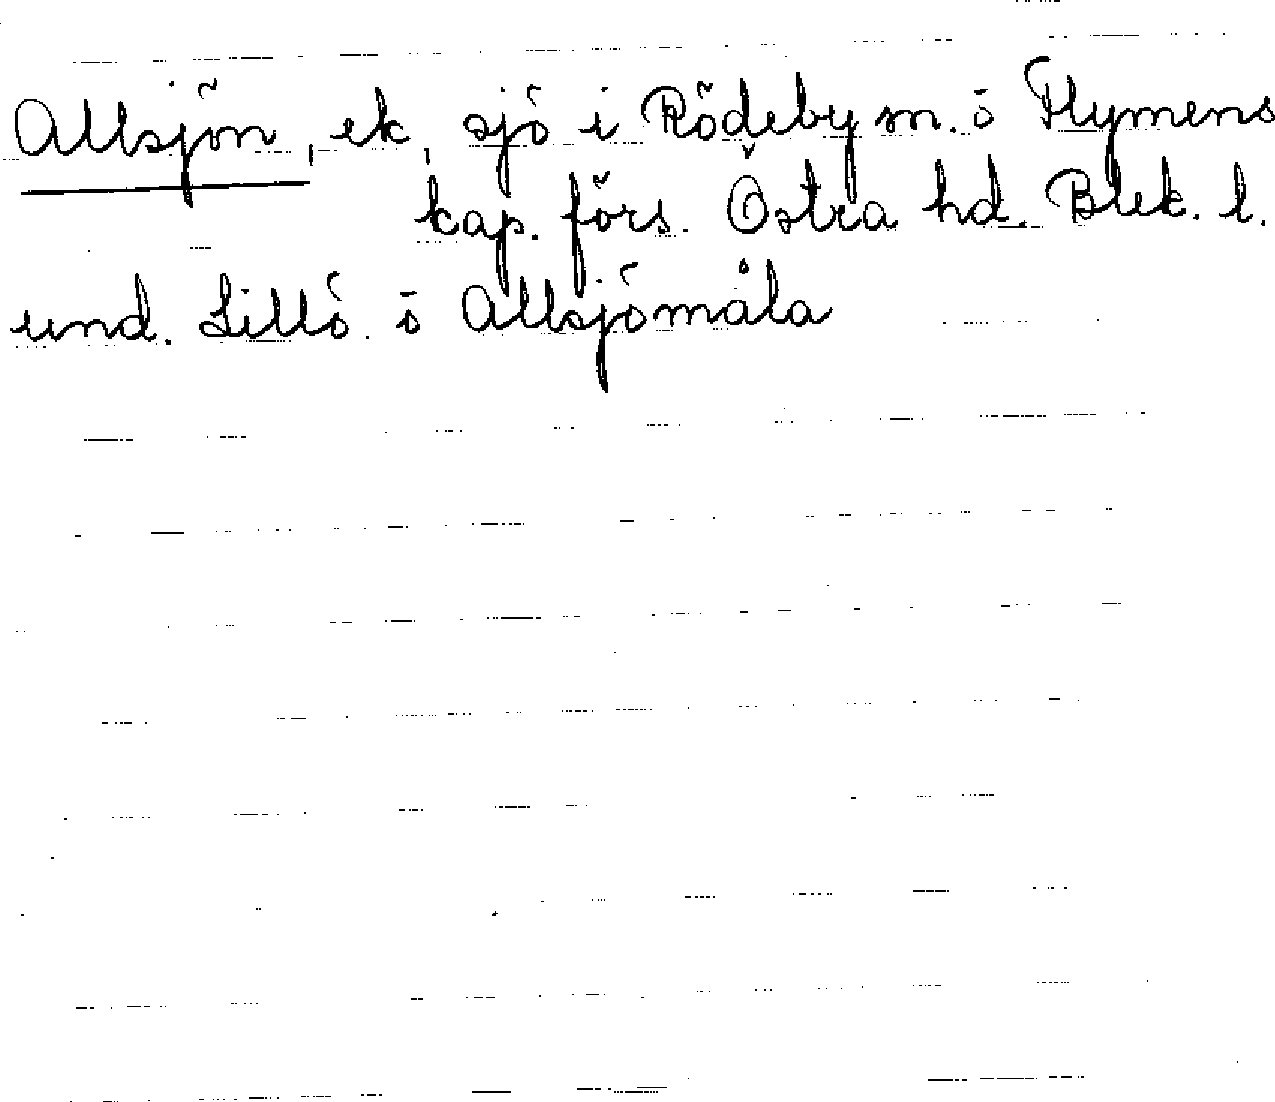 Allsjön, ek, sjö i Rödeby sn. ö Flymens
kap. förs. Östra hd. Blek. l.
und. Lillö. ö Allsjömåla